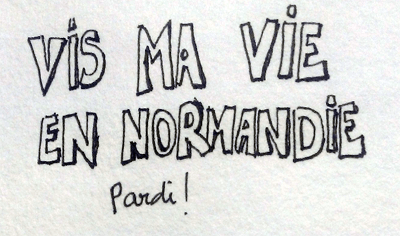 VIS MA VIE
EN NORMANDIE
Pardi!